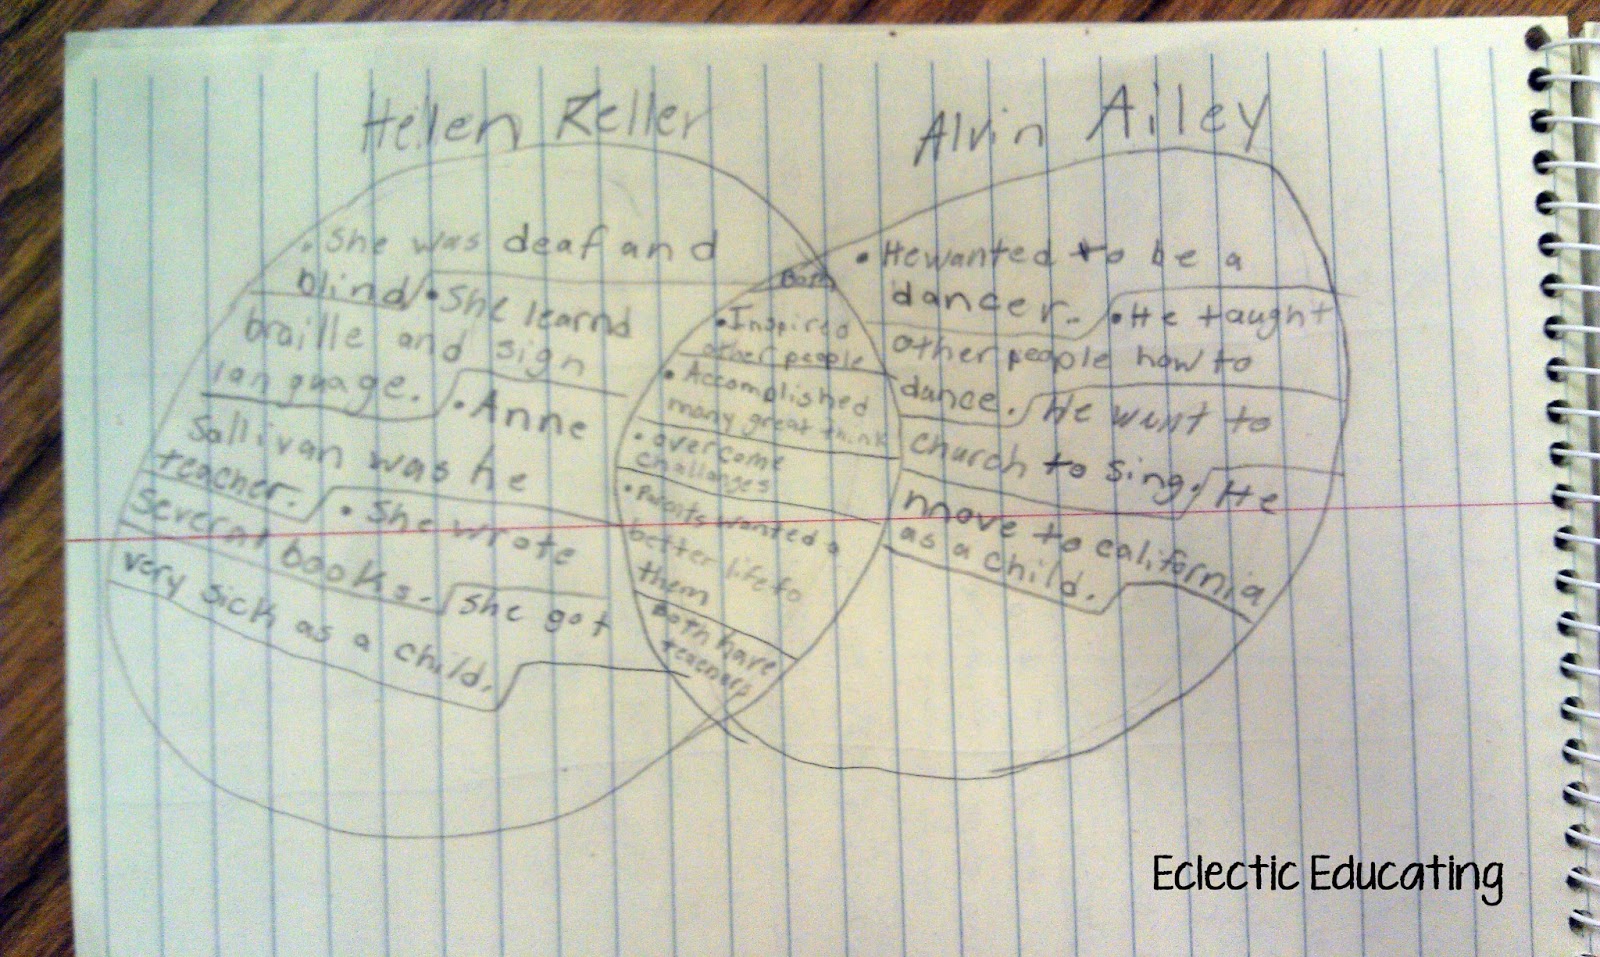 Helen Keller
• She was deaf and
blind • She learnd
braille and sign
language. • Anne
Sallivan was he
teacher. • She wrote
several books. She got
very sick as a child.
Both
• Inspired
other people
• Accomplished
many great think
• overcome
challanges
• Parents wanted a
better life fo
them
Both have
teachers
Alvin Ailey
• He wanted to be a
dancer. • He taught
other people how to
dance. He went to
church to sing. He
move to california
as a child.
Eclectic Educating